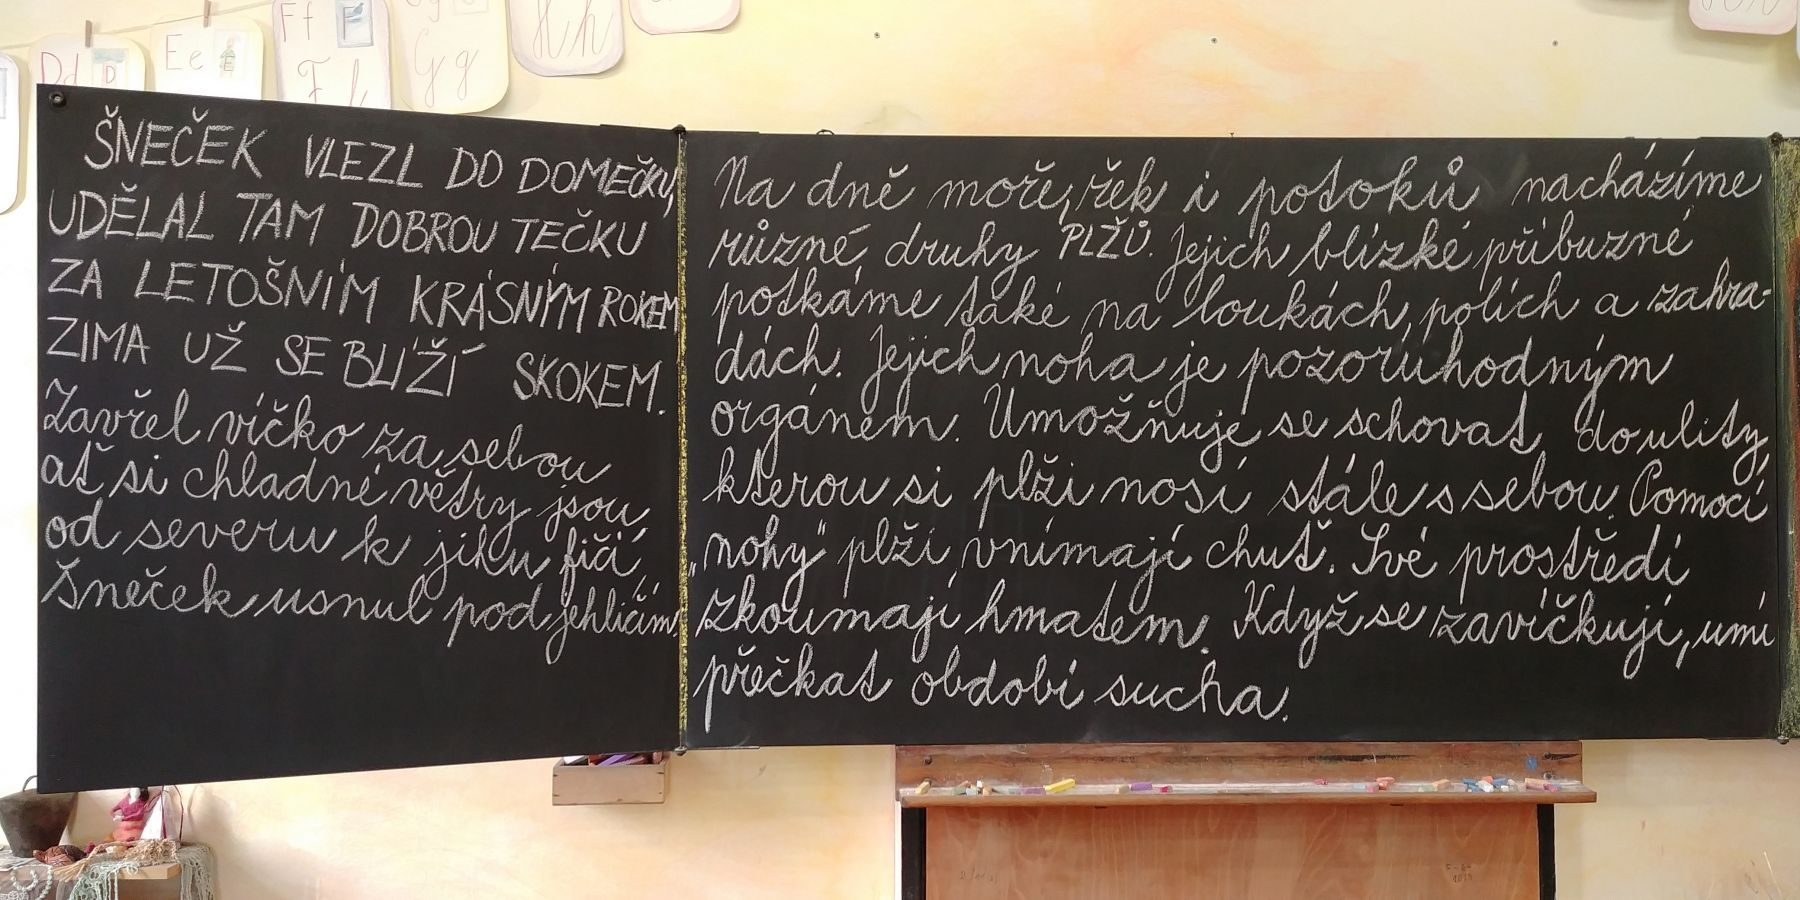 Dd D
Ee E
Ff F
F f
Gg
Gg
Hh
ŠNEČEK VLEZL DO DOMEČKU,
UDĚLAL TAM DOBROU TEČKU
ZA LETOŠNÍM KRÁSNÝM ROKEM
ZIMA UŽ SE BLÍŽÍ SKOKEM.
Zavřel víčko za sebou
ať si chladné větry jsou,
od severu k jihu fičí,
Šneček usnul pod jehličím
Na dně moře, řek i potoků nacházíme
různé druhy PLŽŮ. Jejich blízké příbuzné
potkáme také na loukách, polích a zahra-
dách. Jejich noha je pozoruhodným
orgánem. Umožňuje se schovat do ulity,
kterou si plži nosí stále s sebou. Pomocí
„nohy" plži vnímají chuť. Své prostředí
zkoumají hmatem. Když se zavíčkují, umí
přečkat období sucha.